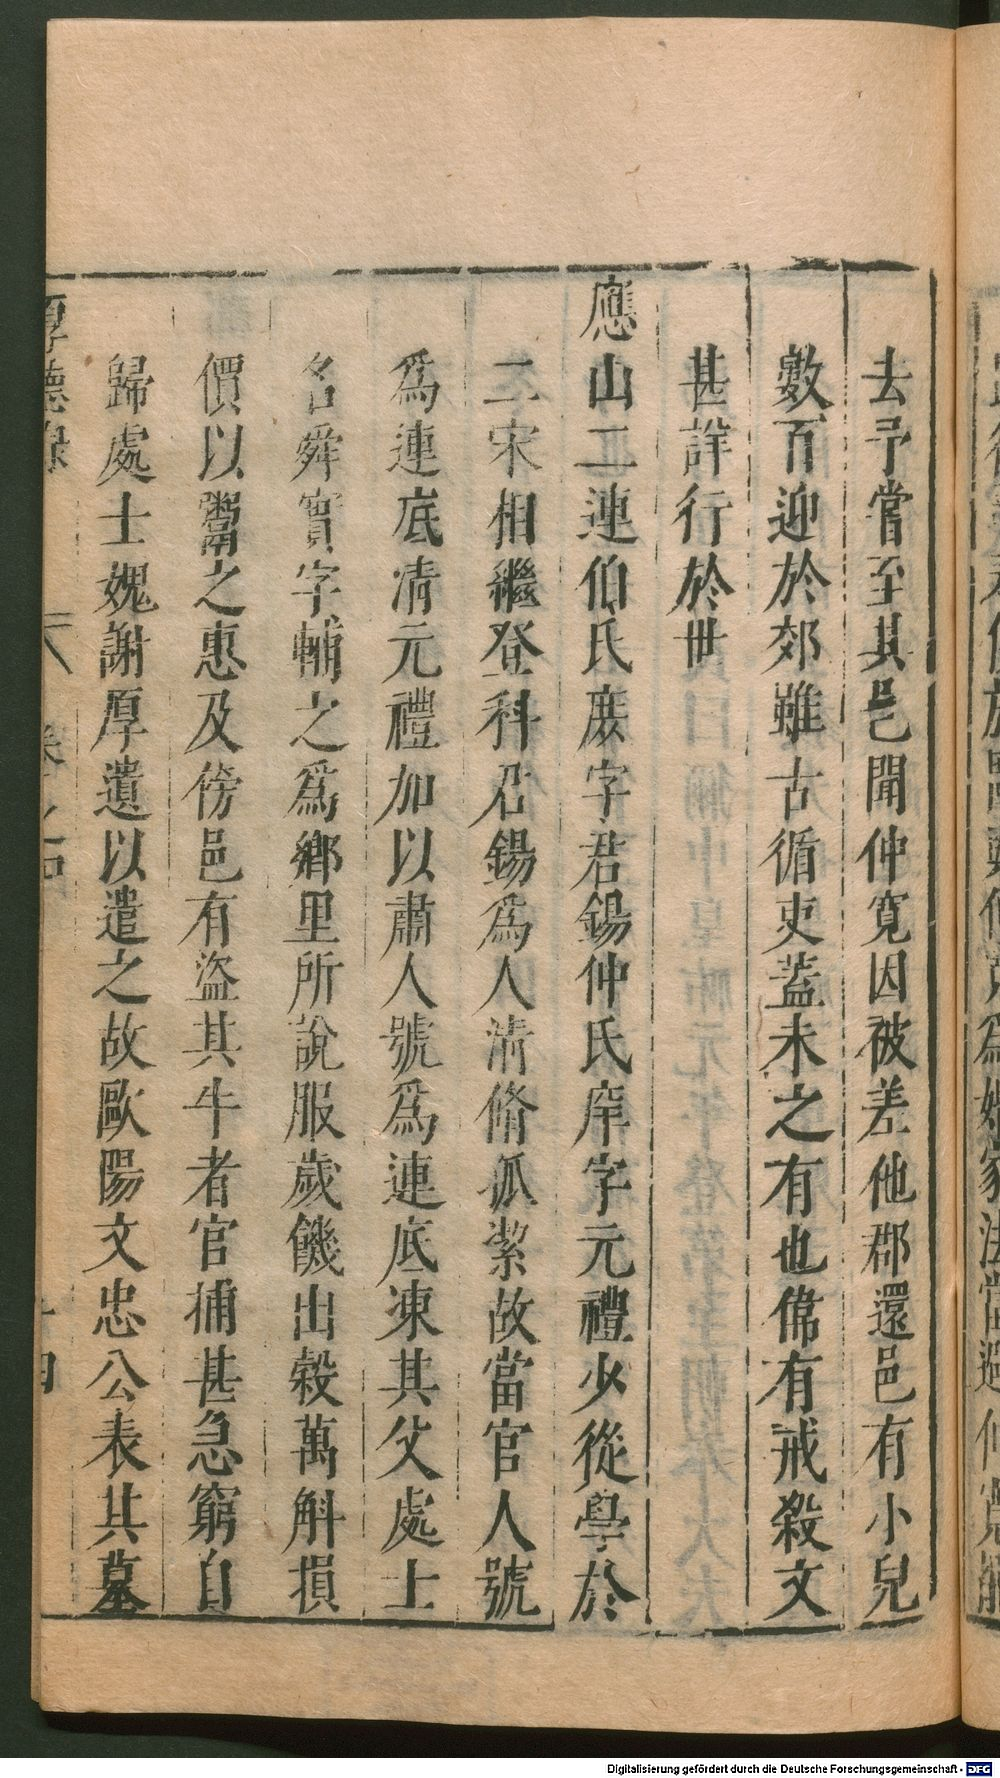 去予嘗至其邑聞仲寛因被差他郡還邑有小兒
數百迎於郊雖古循吏蓋未之有也偉有戒殺文
甚詳行於世
應山二連伯氏庶字君錫仲氏庠字元禮少從學於
二宋相繼登科君錫為人清脩孤潔故當官人號
為連底清元禮加以肅人號為連底凍其父處士
名舜賓字輔之為鄉里所說服歲饑出穀萬斛損
價以鬻之惠及傍邑有盜其牛者官捕甚急窮自
歸處士媿謝厚遺以遣之故歐陽文忠公表其墓
厚德錄 卷之四 十四
Digitalisierung gefördert durch die Deutsche Forschungsgemeinschaft - DFG